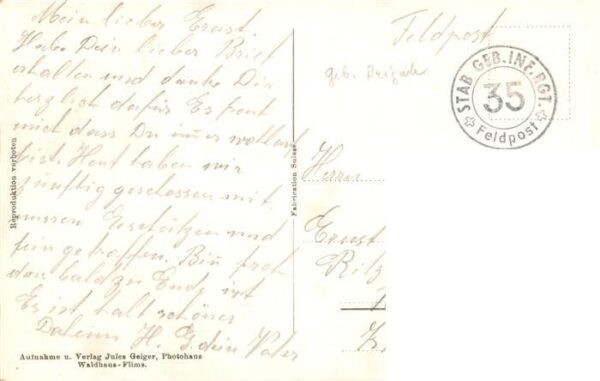 Mein lieber Ernst.
Habe Dein lieber Brief
erhalten und danke Dir
herzlich dafür Es freut
mich dass Du im̅er wohlauf
bist. Heut haben wir
zünftig geschossen mit
unsern Geschützen und
fein getroffen. Bin froh
dass bald zu Ende ist
Es ist halt schöner
Daheim H. G. dein Vater
Reproduktion verboten
Aufnahme u. Verlag Jules Geiger, Photohaus
Waldhaus-Flims.
Fabrication Suisse
Feldpost
geb. Brigade
STAB GEB. INF. RGT.
35
Feldpost
Herrn
Ernst